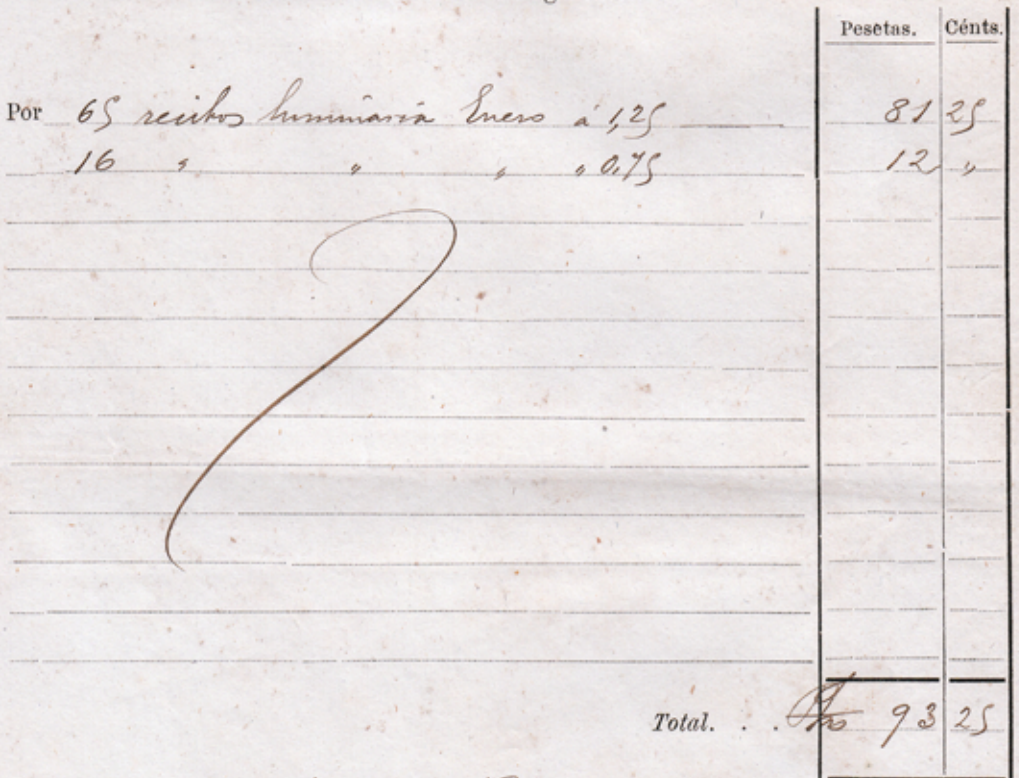 Pesetas. Cénts.
Por 65 recibos luminaria Enero á 1,25 81 25
16 " " " " 0,75 12 "
Total. . . Ptas 93 25